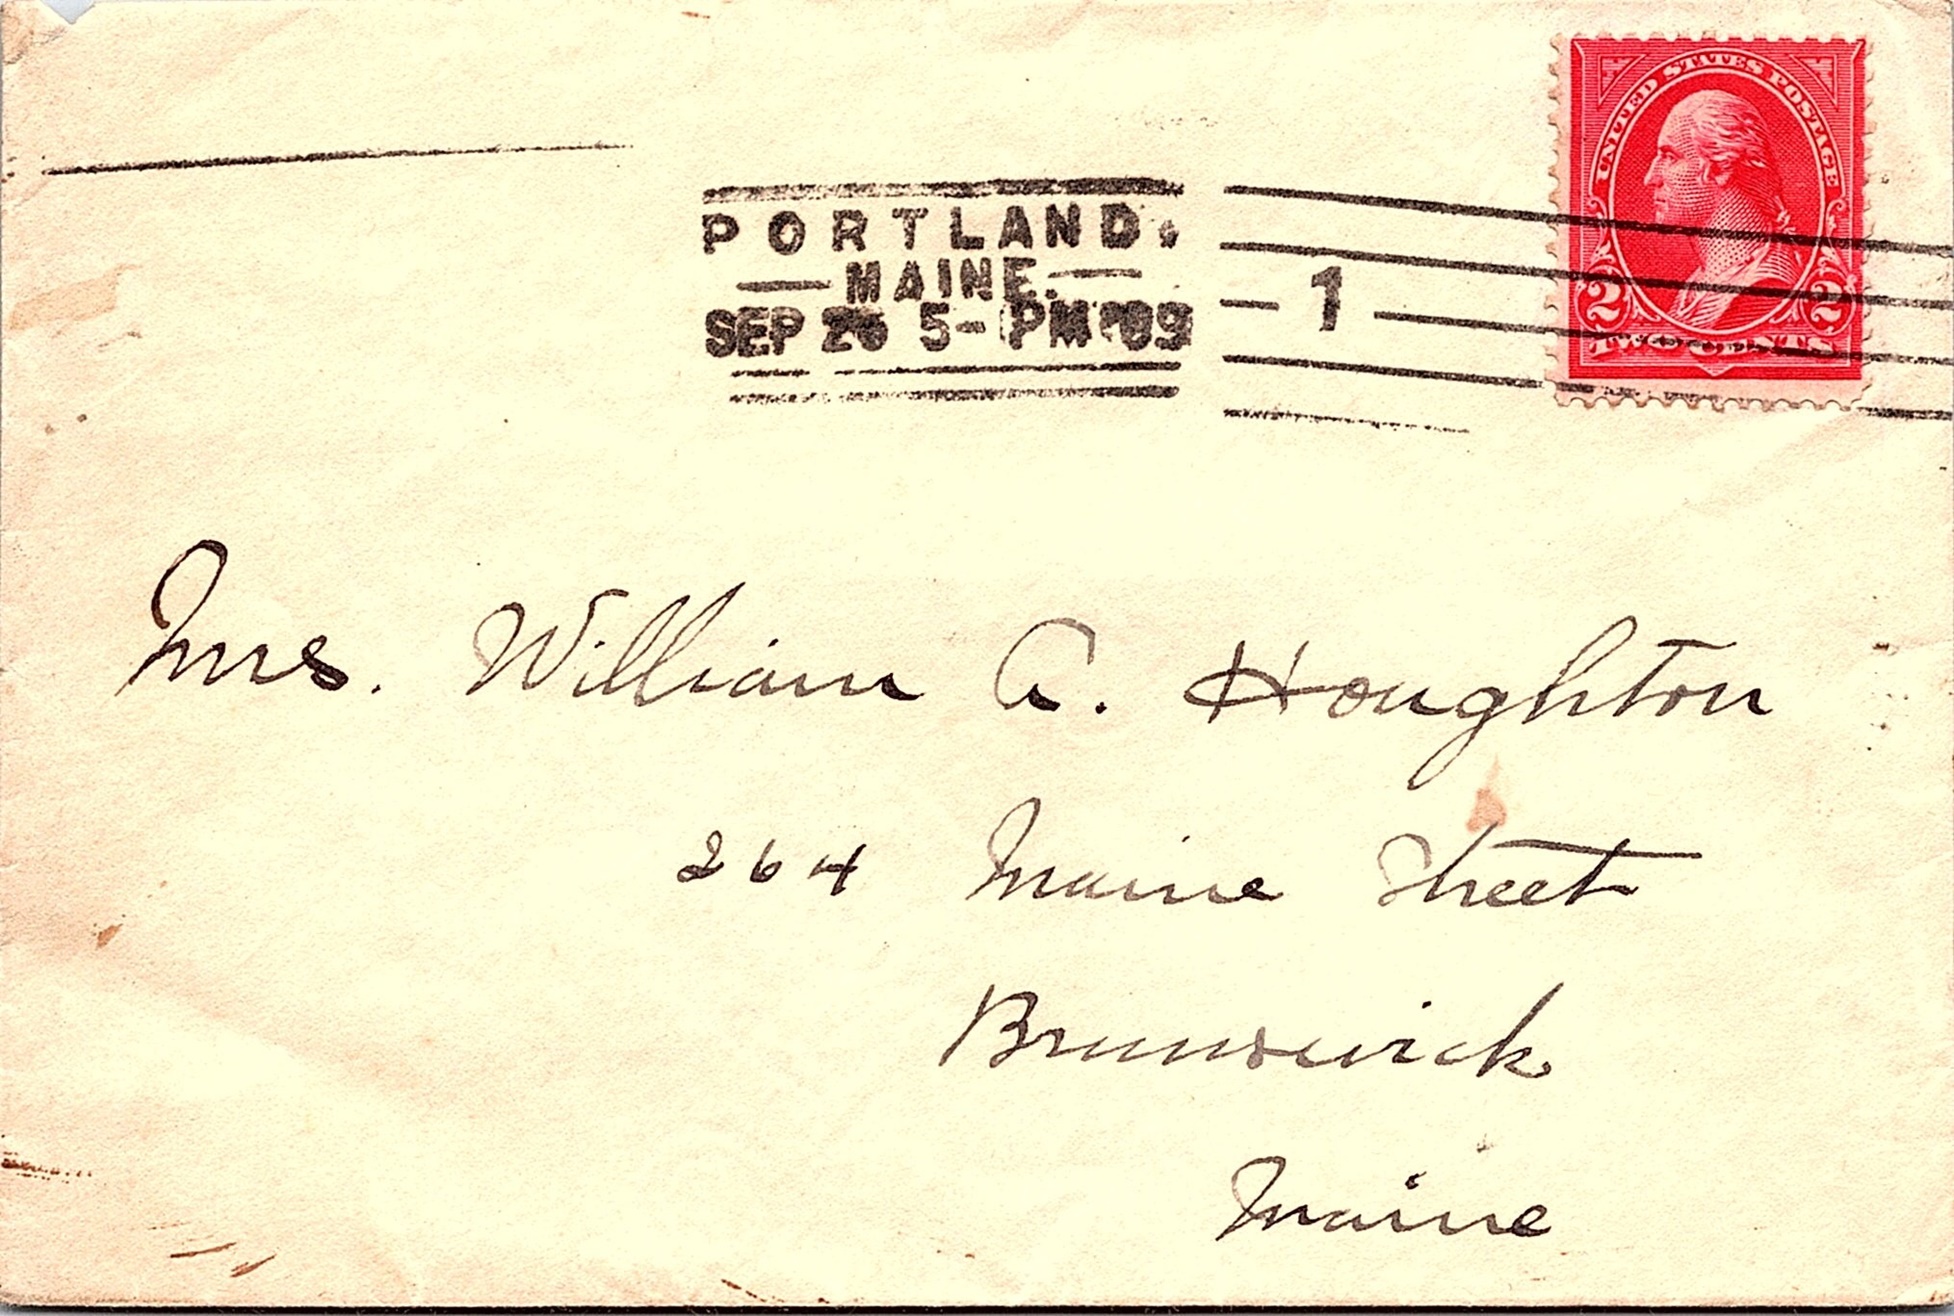 UNITED STATES POSTAGE
PORTLAND.
MAINE.
SEP 26 5- PM '09
1
2 2
TWO CENTS
Mrs. William A. Houghton
264 Maine Street
Brunswick
Maine